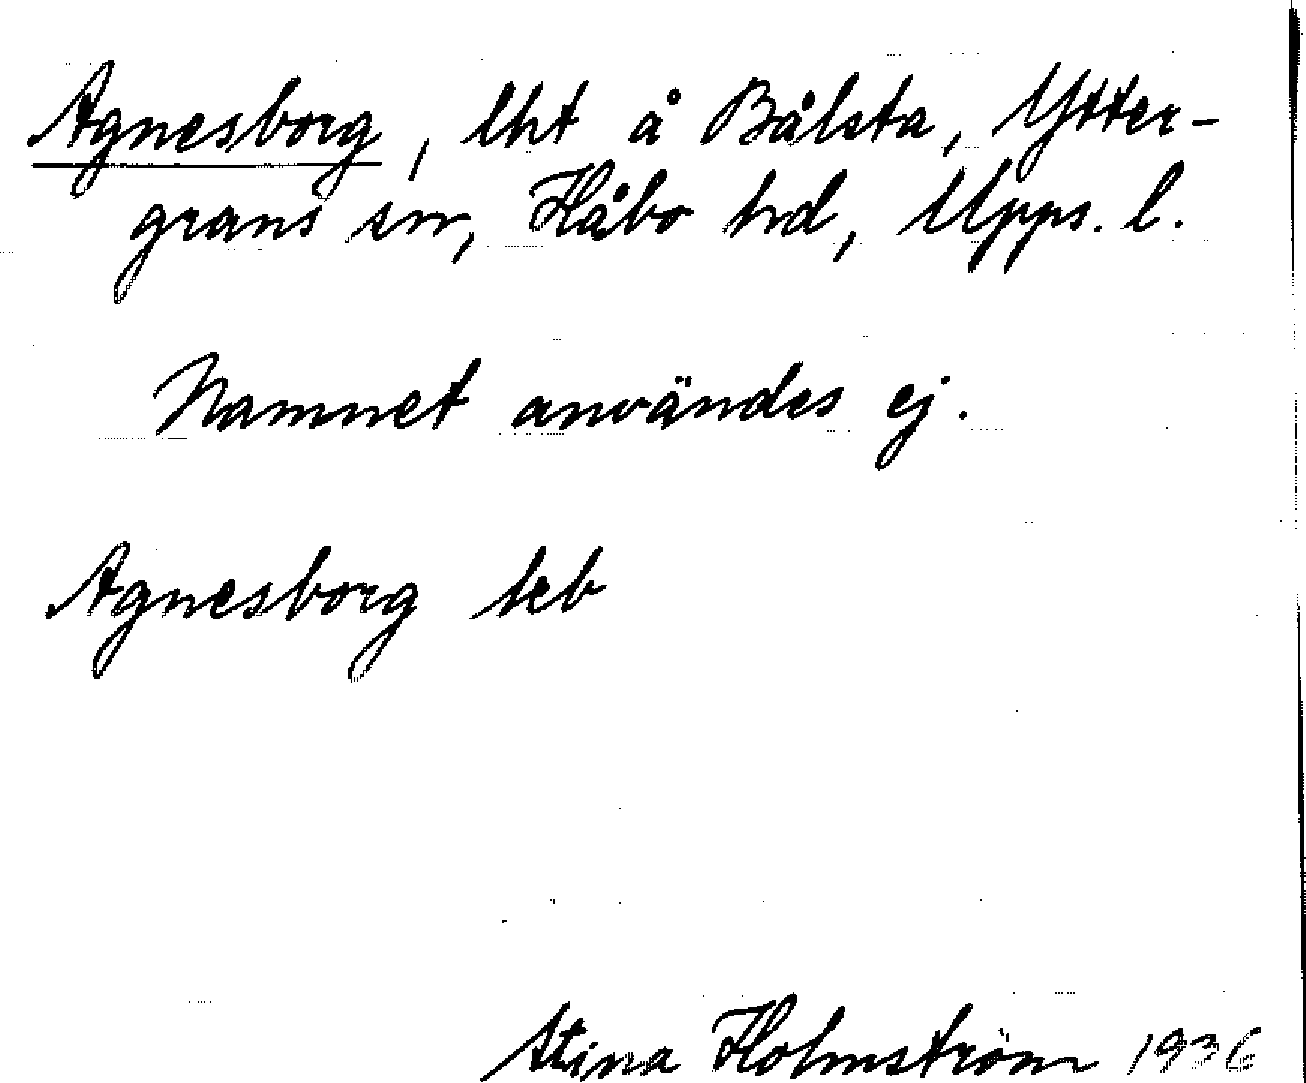 Agnesborg, lht å Bålsta, Ytter-
grans sn, Håbo hd, Upps. l.
Namnet användes ej.
Agnesborg teb
Stina Holmström 1936